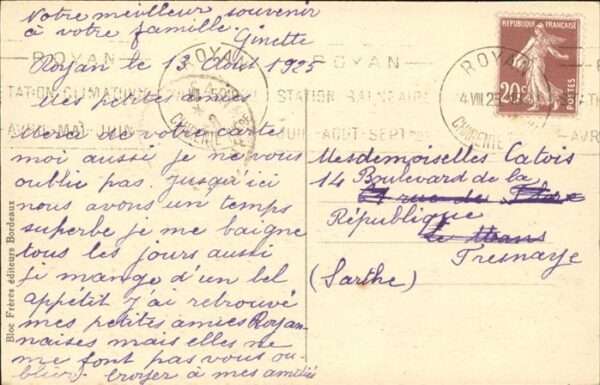 Notre meilleur souvenir
à votre famille.
Ginette
Royan le 13 Août 1925
Mes petites amies
Merci de votre carte
moi aussi je ne vous
oublie pas. Jusqu'ici
nous avons un temps
superbe je me baigne
tous les jours aussi
je mange d'un bel
appétit j'ai retrouvé
mes petites amies Royan-
naises mais elles ne
me font pas vous ou-
blier. Croyer à mes amitiés
Bloc Frères éditeurs Bordeaux
ROYAN
ROYAN
ROYAN
STATION BALNEAIRE
AVRIL-MAI-JUIN
JUIL-AOUT-SEPT
REPUBLIQUE FRANÇAISE
20c
POSTES
Mesdemoiselles Catois
14 Boulevard de la
rue de
République
le Mans
Fresnaye
(Sarthe)